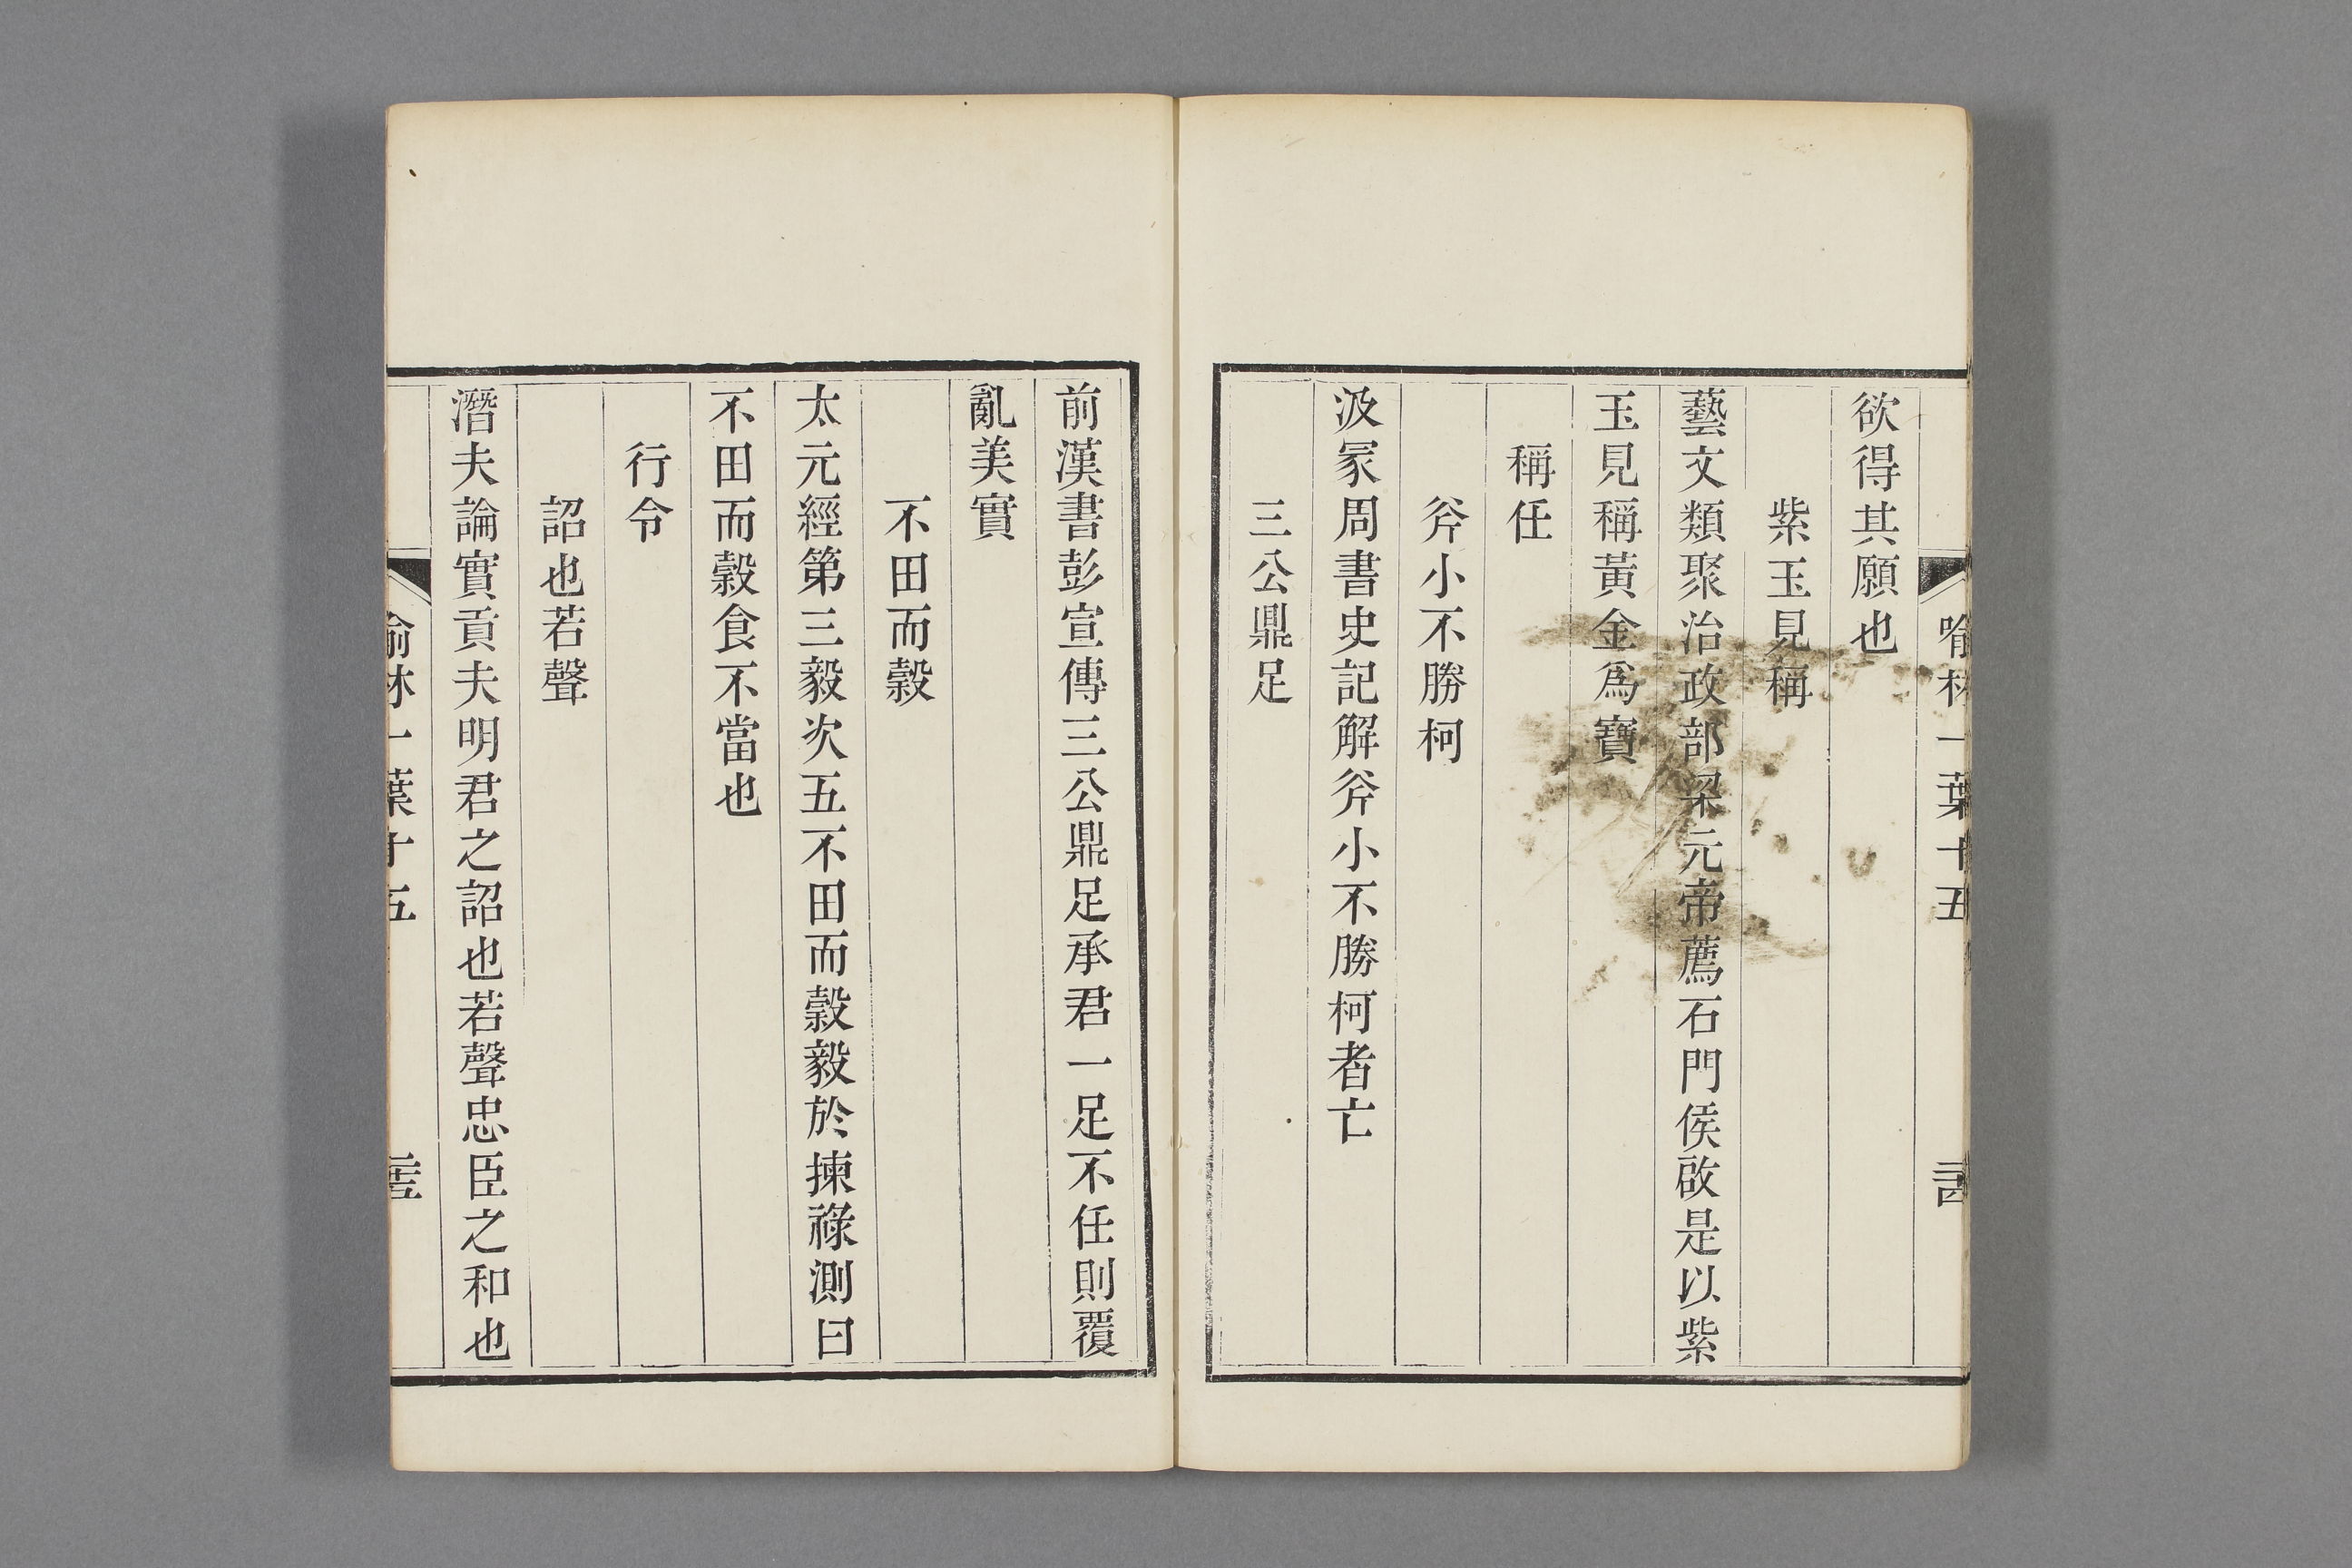 喻林一葉十五
欲得其願也
紫玉見稱
藝文類聚治政部梁元帝薦石門侯啟是以紫
玉見稱黃金爲寶
稱任
斧小不勝柯
汲冢周書史記解斧小不勝柯者亡
三公鼎足
前漢書彭宣傳三公鼎足承君一足不任則覆
亂美實
不田而穀
太元經第三毅次五不田而穀毅於揀祿測曰
不田而穀食不當也
行令
詔也若聲
潛夫論實貢夫明君之詔也若聲忠臣之和也
喻林一葉十五